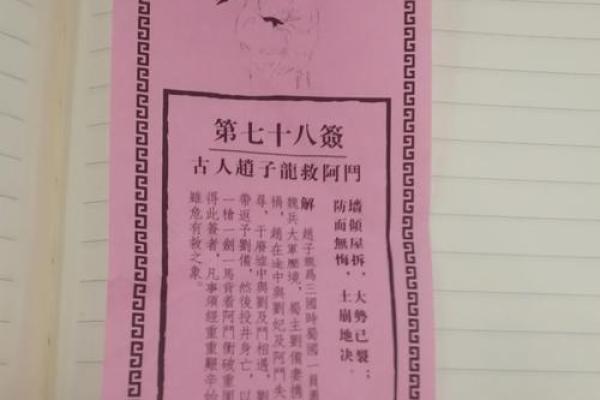 第七十八簽
古人趙子龍救阿鬥
墙傾屋拆，大勢已裂；
防而無悔，土崩地决
解 趙子龍爲三國時蜀國一員
魏兵大軍壓境，蜀主劉備妻携
禍，趙在途中與劉妃及阿鬥失
尋，于廢墟中與劉及鬥相遇，劉
帶返予劉備，然後投井身亡，以
一槍一劍一馬背着阿鬥衝破重圍
得此簽者，凡事須經重重艱辛始
雖危有救之象。